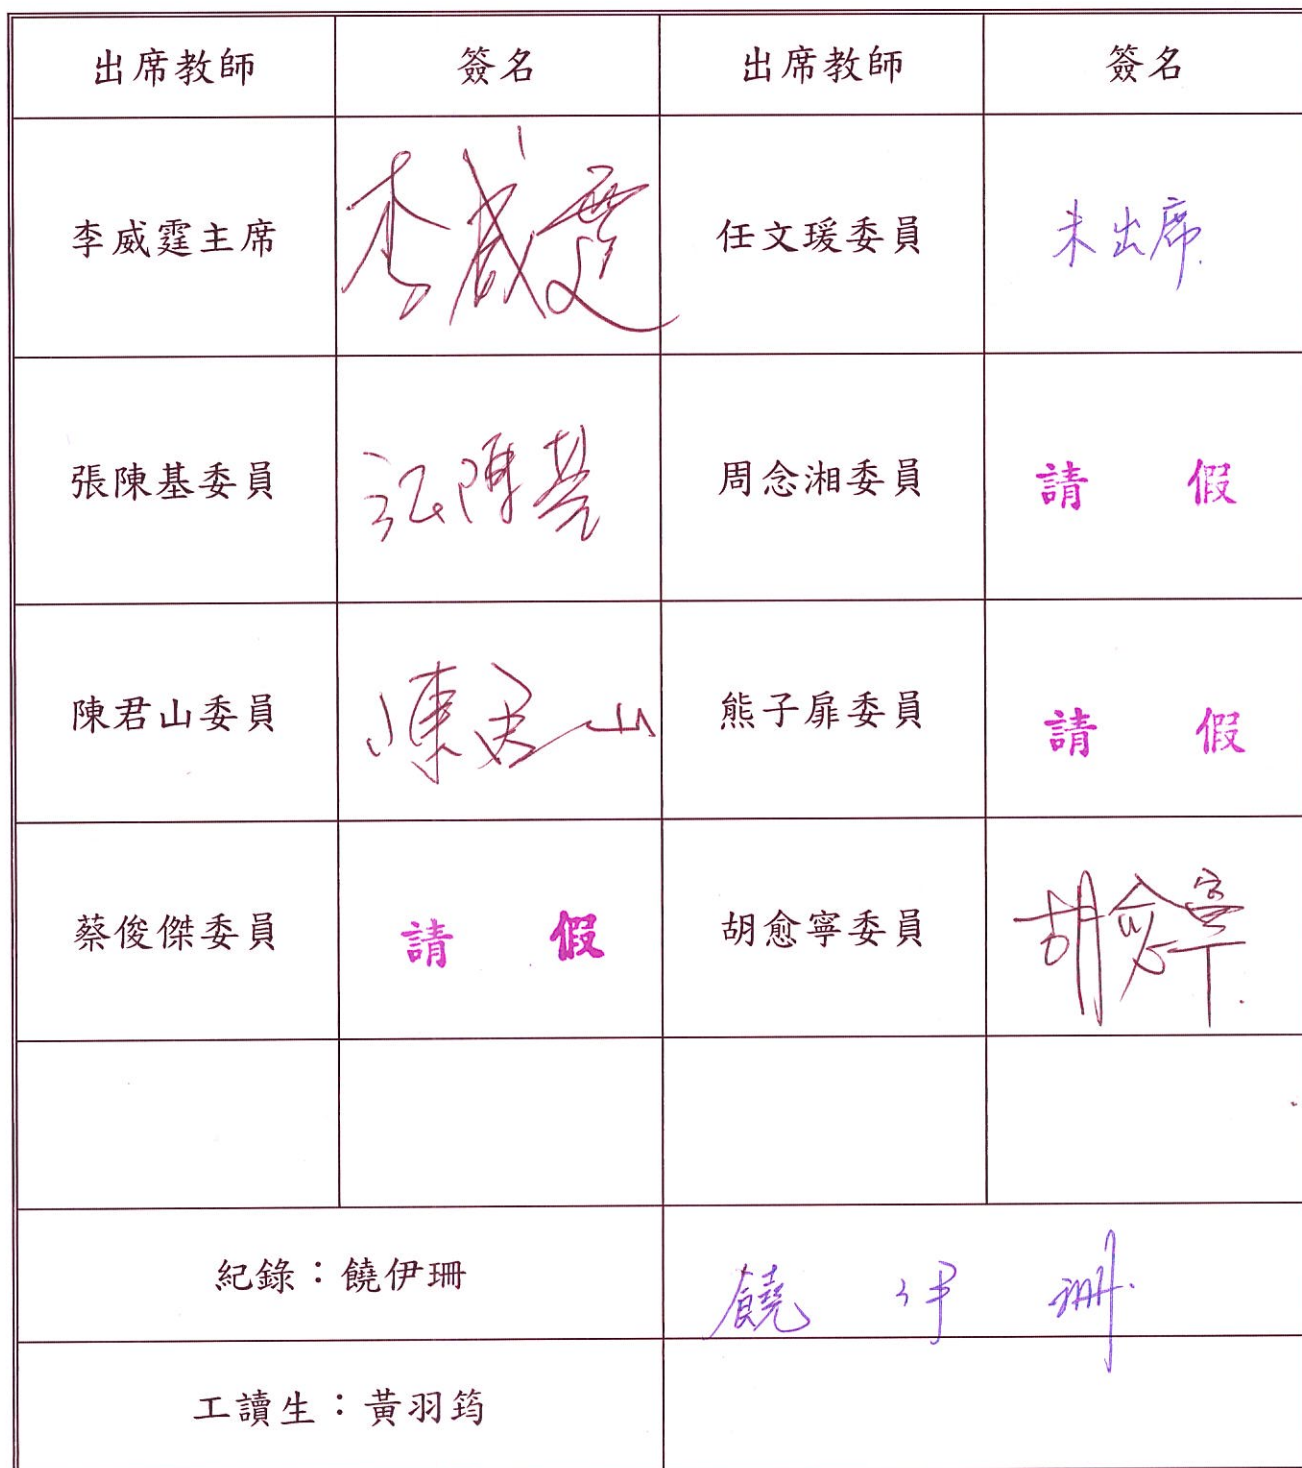 出席教師 簽名 出席教師 簽名
李威霆主席 李威霆 任文瑗委員 未出席.
張陳基委員 張陳基 周念湘委員 請 假
陳君山委員 陳君山 熊子扉委員 請 假
蔡俊傑委員 請 假 胡愈寧委員 胡愈寧
紀錄：饒伊珊 饒 伊 珊.
工讀生：黃羽筠